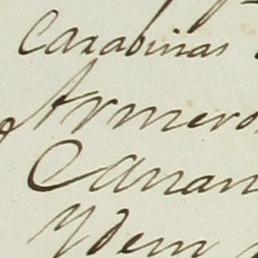 Carabinas
Armero
Canan
Ydem